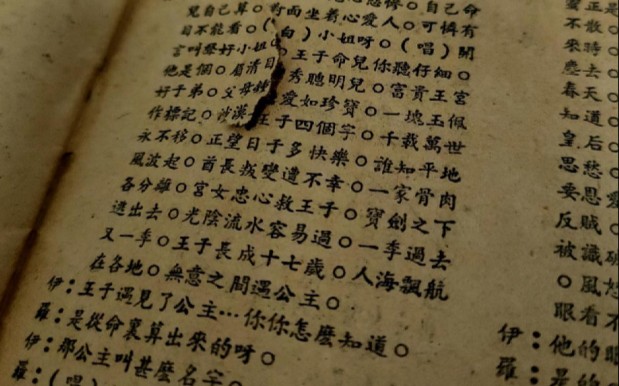 自己命
兒自己算○對面坐着心愛人○可憐有
目不能看○(白)小姐呀○(唱)開
言叫聲好小姐○王子命兒你聽仔細○
他是個○眉清目秀聰明兒○富貴王宮
好子弟○父母愛如珍寶○一塊玉佩
作標記○沙漠王子四個字○千載萬世
永不移○正望日子多快樂○誰知平地
風波起○酋長叛變遭不幸○一家骨肉
各分離○宮女忠心救王子○寶劍之下
逃出去○光陰流水容易過○一季過去
又一季○王子長成十七歲○人海飄航
在各地○無意之間遇公主○
伊：王子遇見了公主…你你怎麼知道○
羅：是從命裏算出來的呀○
伊：那公主叫甚麼名字○
羅：(唱)
正是
不散
來時
塵去
春天
知道
皇后
思愁
要恩愛
反賊
被識破
○風
眼看不
伊：他的眼
羅：是的